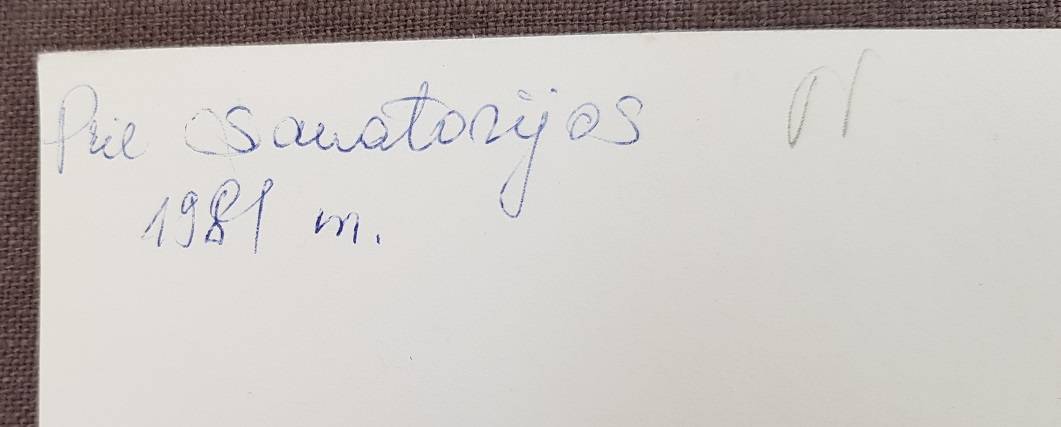 Prie sanatorijos
1981 m.